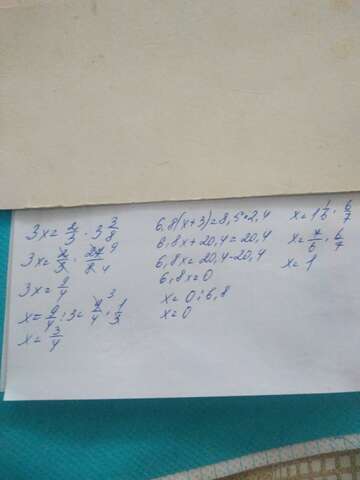 3x = 2/3 · 3 3/8
3x = 2/3 · 27/8 9 4
3x = 9/4
x = 9/4 : 3 = 9/4 3 · 1/3
x = 3/4
6,8(x+3)=8,5·2,4
6,8x+20,4=20,4
6,8x=20,4-20,4
6,8x=0
x=0:6,8
x=0
x=1 1/6 · 6/7
x=7/6 · 6/7
x=1